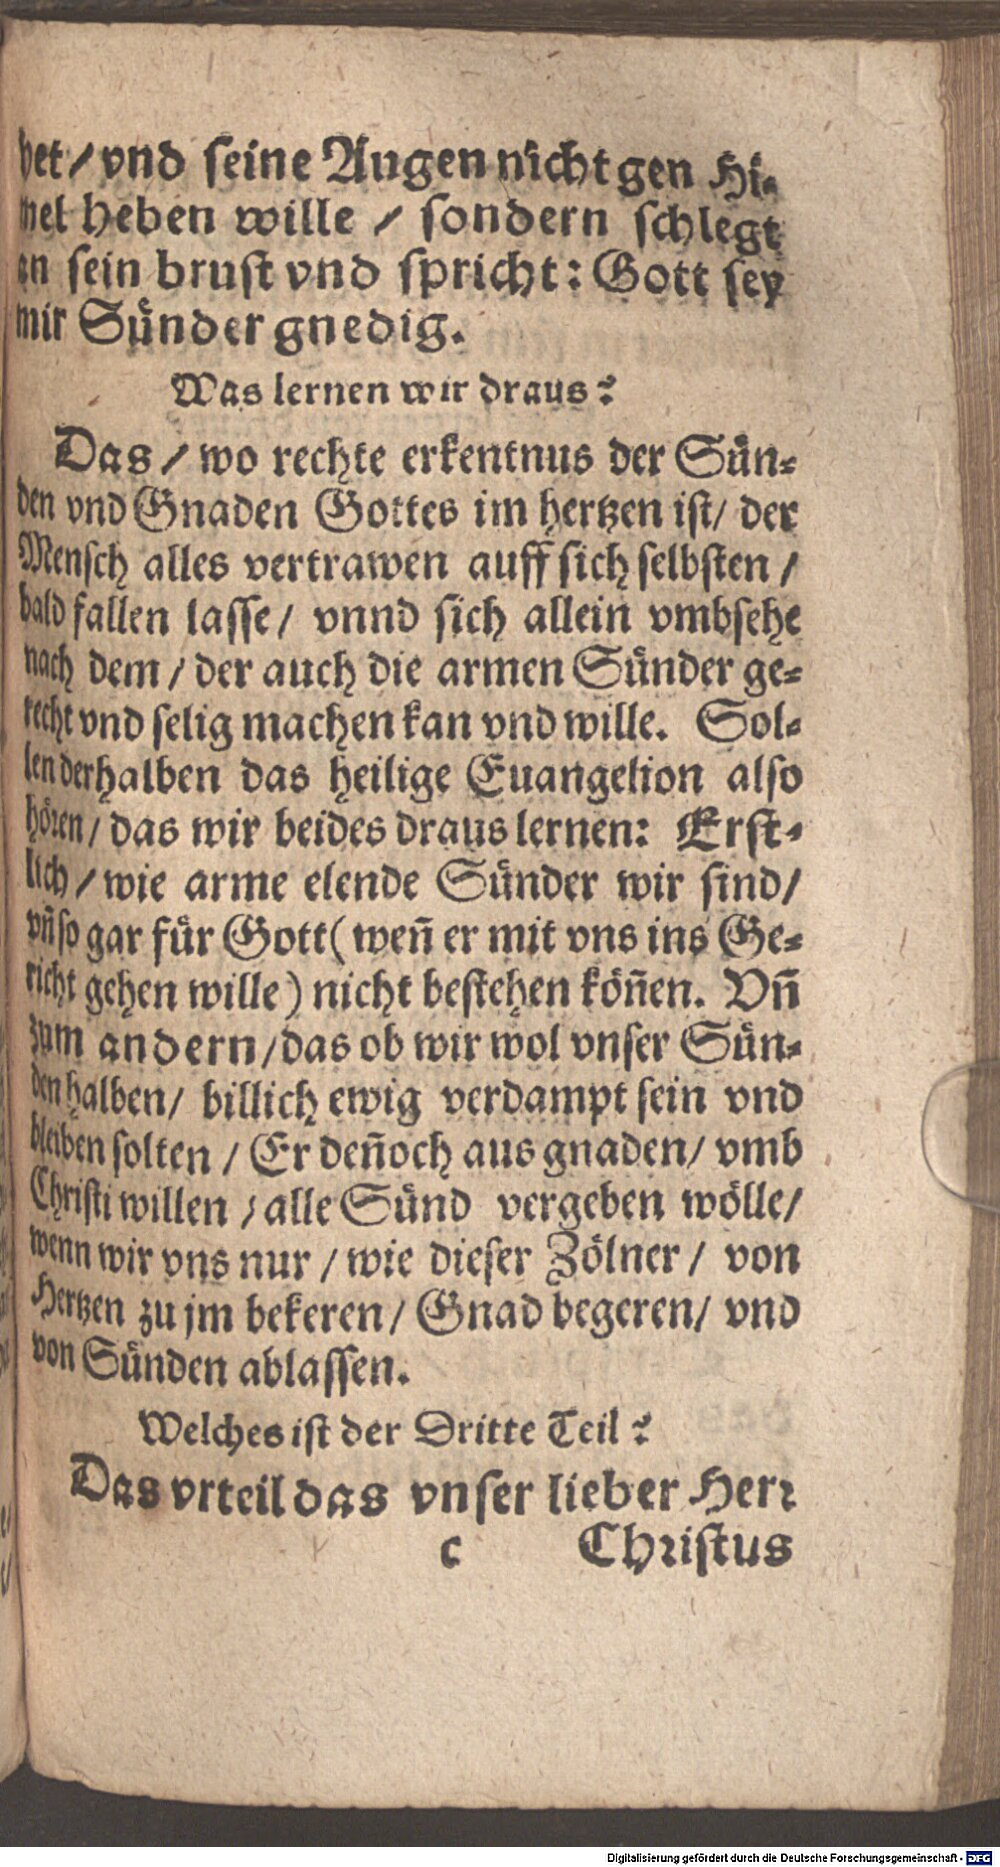 bet / vnd seine Augen nicht gen Hi-
mel heben wille / sondern schlegt
an sein brust vnd spricht: Gott sey
mir Sünder gnedig.
Was lernen wir draus?
Das / wo rechte erkentnus der Sün-
den vnd Gnaden Gottes im hertzen ist / der
Mensch alles vertrawen auff sich selbsten /
bald fallen lasse / vnnd sich allein vmbsehe
nach dem / der auch die armen Sünder ge-
recht vnd selig machen kan vnd wille. Sol-
len derhalben das heilige Euangelion also
hören / das wir beides draus lernen: Erst-
lich / wie arme elende Sünder wir sind /
vñ so gar für Gott ( weñ er mit vns ins Ge-
richt gehen wille ) nicht bestehen köñen. Vñ
zum andern / das ob wir wol vnser Sün-
den halben / billich ewig verdampt sein vnd
bleiben solten / Er deñoch aus gnaden / vmb
Christi willen / alle Sünd vergeben wölle /
wenn wir vns nur / wie dieser Zölner / von
Hertzen zu jm bekeren / Gnad begeren / vnd
von Sünden ablassen.
Welches ist der Dritte Teil?
Das vrteil das vnser lieber Herr
c Christus
Digitalisierung gefördert durch die Deutsche Forschungsgemeinschaft - DFG